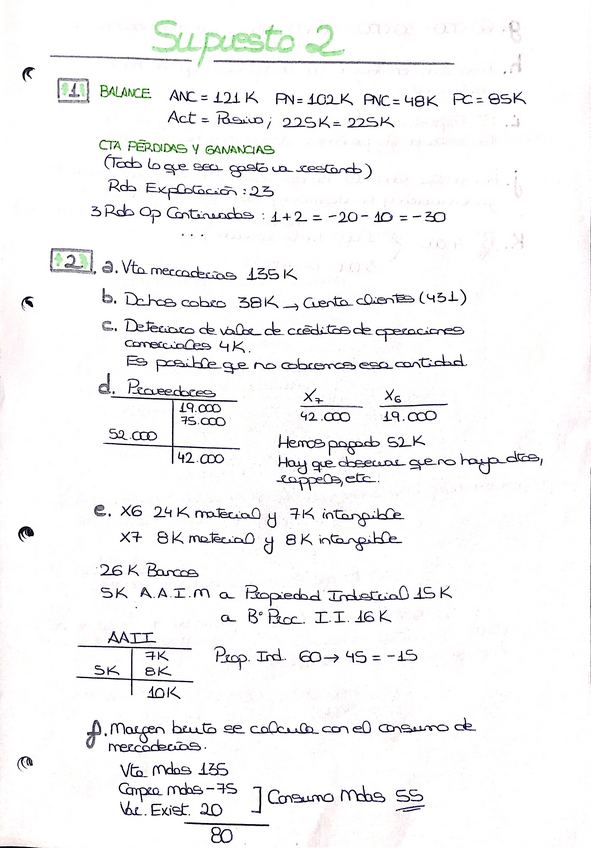 Supuesto 2
1. BALANCE ANC = 121K PN = 102K PNC = 48K PC = 85K
Act = Pasivo; 225K = 225K
CTA PÉRDIDAS Y GANANCIAS
(Todo lo que sea gasto va restando)
Rdo Explotación: 23
3 Rdo Op Continuadas: 1+2 = -20 - 10 = -30
...
2. a. Vta mercaderias 135K
b. Dchos cobro 38K → Cuenta clientes (431)
c. Deterioro de valor de créditos de operaciones
comerciales 4K.
Es posible que no cobremos esa cantidad.
d. Proveedores X7 X6
19.000 42.000 19.000
75.000
52.000 Hemos pagado 52K
42.000 Hay que observar que no haya dtos,
rappels, etc.
e. X6 24K material y 7K intangible
X7 8K material y 8K intangible
26K Bancos
5K A.A.I.M a Propiedad Industrial 15K
a Bº Proc. I.I. 16K
AAII
7K Prop. Ind. 60 → 45 = -15
5K 8K
10K
f. Margen bruto se calcula con el consumo de
mercaderias.
Vta Mdas 135
Compra mdas -75
Var. Exist. 20 ] Consumo Mdas 55
80